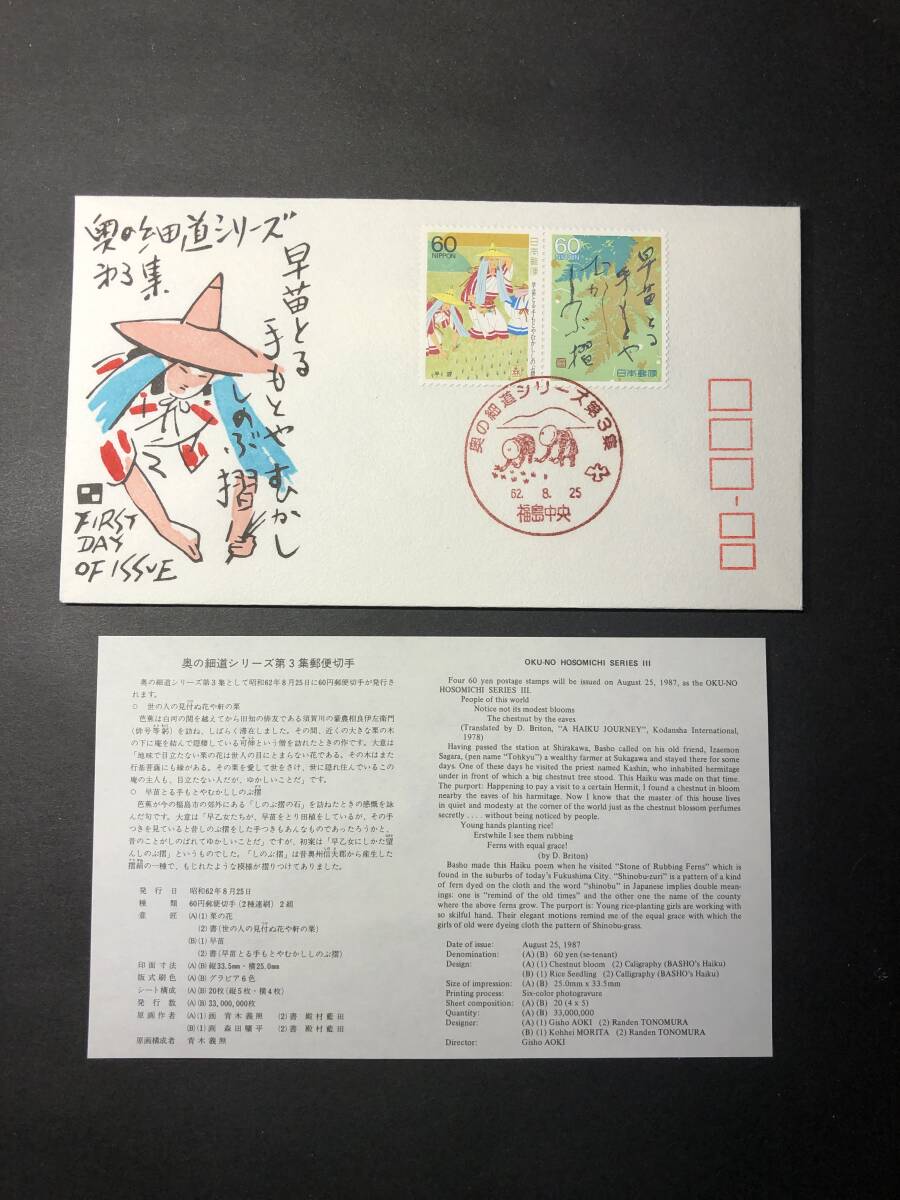 奥の細道シリーズ
第3集
早苗とる
手もとやむかし
しのぶ摺
FIRST
DAY
OF ISSUE
60
NIPPON
日本郵便
早苗とる手もとやむかししのぶ摺
60
NIPPON
早苗とる
手もとや
むかし
しのぶ摺
日本郵便
奥の細道シリーズ第3集
62. 8. 25
福島中央
奥の細道シリーズ第3集郵便切手
奥の細道シリーズ第3集として昭和62年8月25日に60円郵便切手が発行さ
れます。
○ 世の人の見付ぬ花や軒の栗
芭蕉は白河の関を越えてから旧知の俳友である須賀川の豪農相良伊左衛門
(俳号等躬)を訪ね、しばらく滞在しました。その間、近くの大きな栗の木
の下に庵を結んで隠棲している可伸という僧を訪れたときの作です。大意は
「地味で目立たない栗の花は世人の目にとまらない花である。その木はまた
行基菩薩にも縁がある。その栗を愛して世をさけ、世に隠れ住んでいるこの
庵の主人も、目立たない人だが、ゆかしいことだ」です。
○ 早苗とる手もとやむかししのぶ摺
芭蕉が今の福島市の郊外にある「しのぶ摺の石」を訪ねたときの感慨を詠
んだ句です。大意は「早乙女たちが、早苗をとり田植をしているが、その手
つきを見ていると昔しのぶ摺をした手つきもあんなものであったろうかと、
昔のことがしのばれてゆかしいことだ」ですが、初案は「早乙女にしかた望
んしのぶ摺」というものでした。「しのぶ摺」は昔奥州信夫郡から産生した
摺絹の一種で、もじれたような模様が摺りつけてありました。
発行日 昭和62年8月25日
種類 60円郵便切手(2種連刷)2組
意匠 (A)(1)栗の花
(2)書(世の人の見付ぬ花や軒の栗)
(B)(1)早苗
(2)書(早苗とる手もとやむかししのぶ摺)
印面寸法 (A)(B)縦33.5mm・横25.0mm
版式刷色 (A)(B)グラビア6色
シート構成 (A)(B)20枚(縦5枚・横4枚)
発行数 (A)(B)33,000,000枚
原画作者 (A)(1)画 青木義照 (2)書 殿村藍田
(B)(1)画 森田曠平 (2)書 殿村藍田
原画構成者 青木義照
OKU-NO HOSOMICHI SERIES III
Four 60 yen postage stamps will be issued on August 25, 1987, as the OKU-NO
HOSOMICHI SERIES III.
People of this world
Notice not its modest blooms
The chestnut by the eaves
(Translated by D. Briton, “A HAIKU JOURNEY”, Kodansha International,
1978)
Having passed the station at Shirakawa, Basho called on his old friend, Izaemon
Sagara, (pen name “Tohkyu”) a wealthy farmer at Sukagawa and stayed there for some
days. One of these days he visited the priest named Kashin, who inhabited hermitage
under in front of which a big chestnut tree stood. This Haiku was made on that time.
The purport: Happening to pay a visit to a certain Hermit, I found a chestnut in bloom
nearby the eaves of his harmitage. Now I know that the master of this house lives
in quiet and modesty at the corner of the world just as the chestnut blossom perfumes
secretly .... without being noticed by people.
Young hands planting rice!
Erstwhile I see them rubbing
Ferns with equal grace!
(by D. Briton)
Basho made this Haiku poem when he visited “Stone of Rubbing Ferns” which is
found in the suburbs of today's Fukushima City. “Shinobu-zuri” is a pattern of a kind
of fern dyed on the cloth and the word “shinobu” in Japanese implies double mean-
ings: one is “remind of the old times” and the other one the name of the county
where the above ferns grow. The purport is: Young rice-planting girls are working with
so skilful hand. Their elegant motions remind me of the equal grace with which the
girls of old were dyeing cloth the pattern of Shinobu-grass.
Date of issue: August 25, 1987
Denomination: (A) (B) 60 yen (se-tenant)
Design: (A) (1) Chestnut bloom (2) Caligraphy (BASHO's Haiku)
(B) (1) Rice Seedling (2) Calligraphy (BASHO's Haiku)
Size of impression: (A) (B) 25.0mm x 33.5mm
Printing process: Six-color photogravure
Sheet composition: (A) (B) 20 (4 x 5)
Quantity: (A) (B) 33,000,000
Designer: (A) (1) Gisho AOKI (2) Randen TONOMURA
(B) (1) Kohhei MORITA (2) Randen TONOMURA
Director: Gisho AOKI